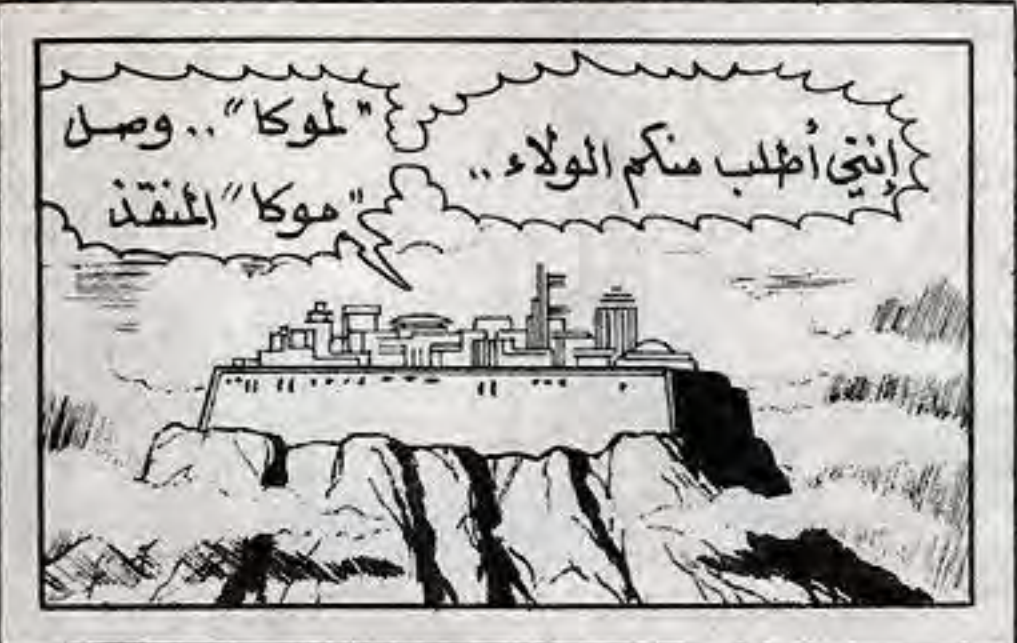 إنني أطلب منكم الولاء ..
"لموكا" .. وصل
"موكا" المنقذ